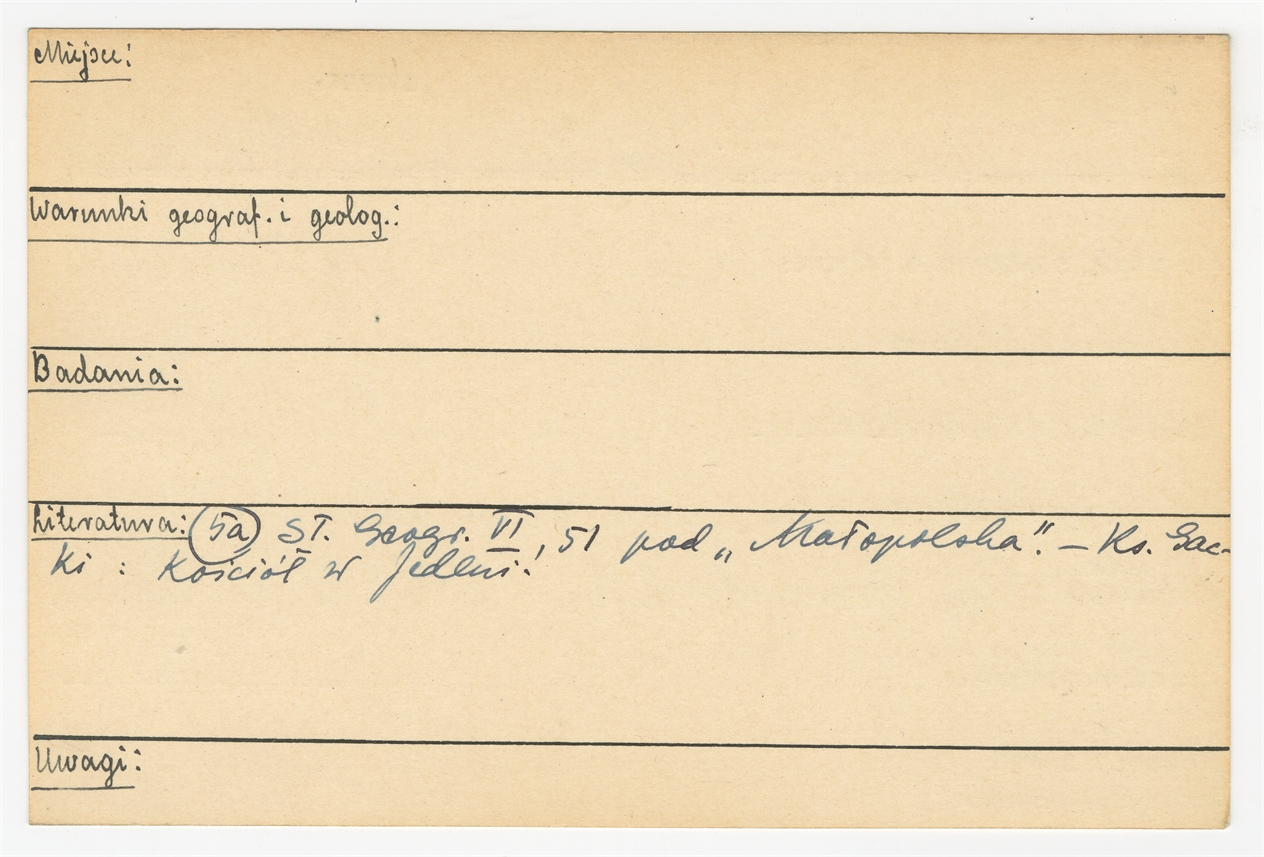 Miejsce:
Warunki geograf. i geolog.:
Badania:
Literatura: 5a Sł. Geogr. VI, 51 pod „Małopolska". – Ks. Gac-
ki : Kościół w Jedlni.
Uwagi: